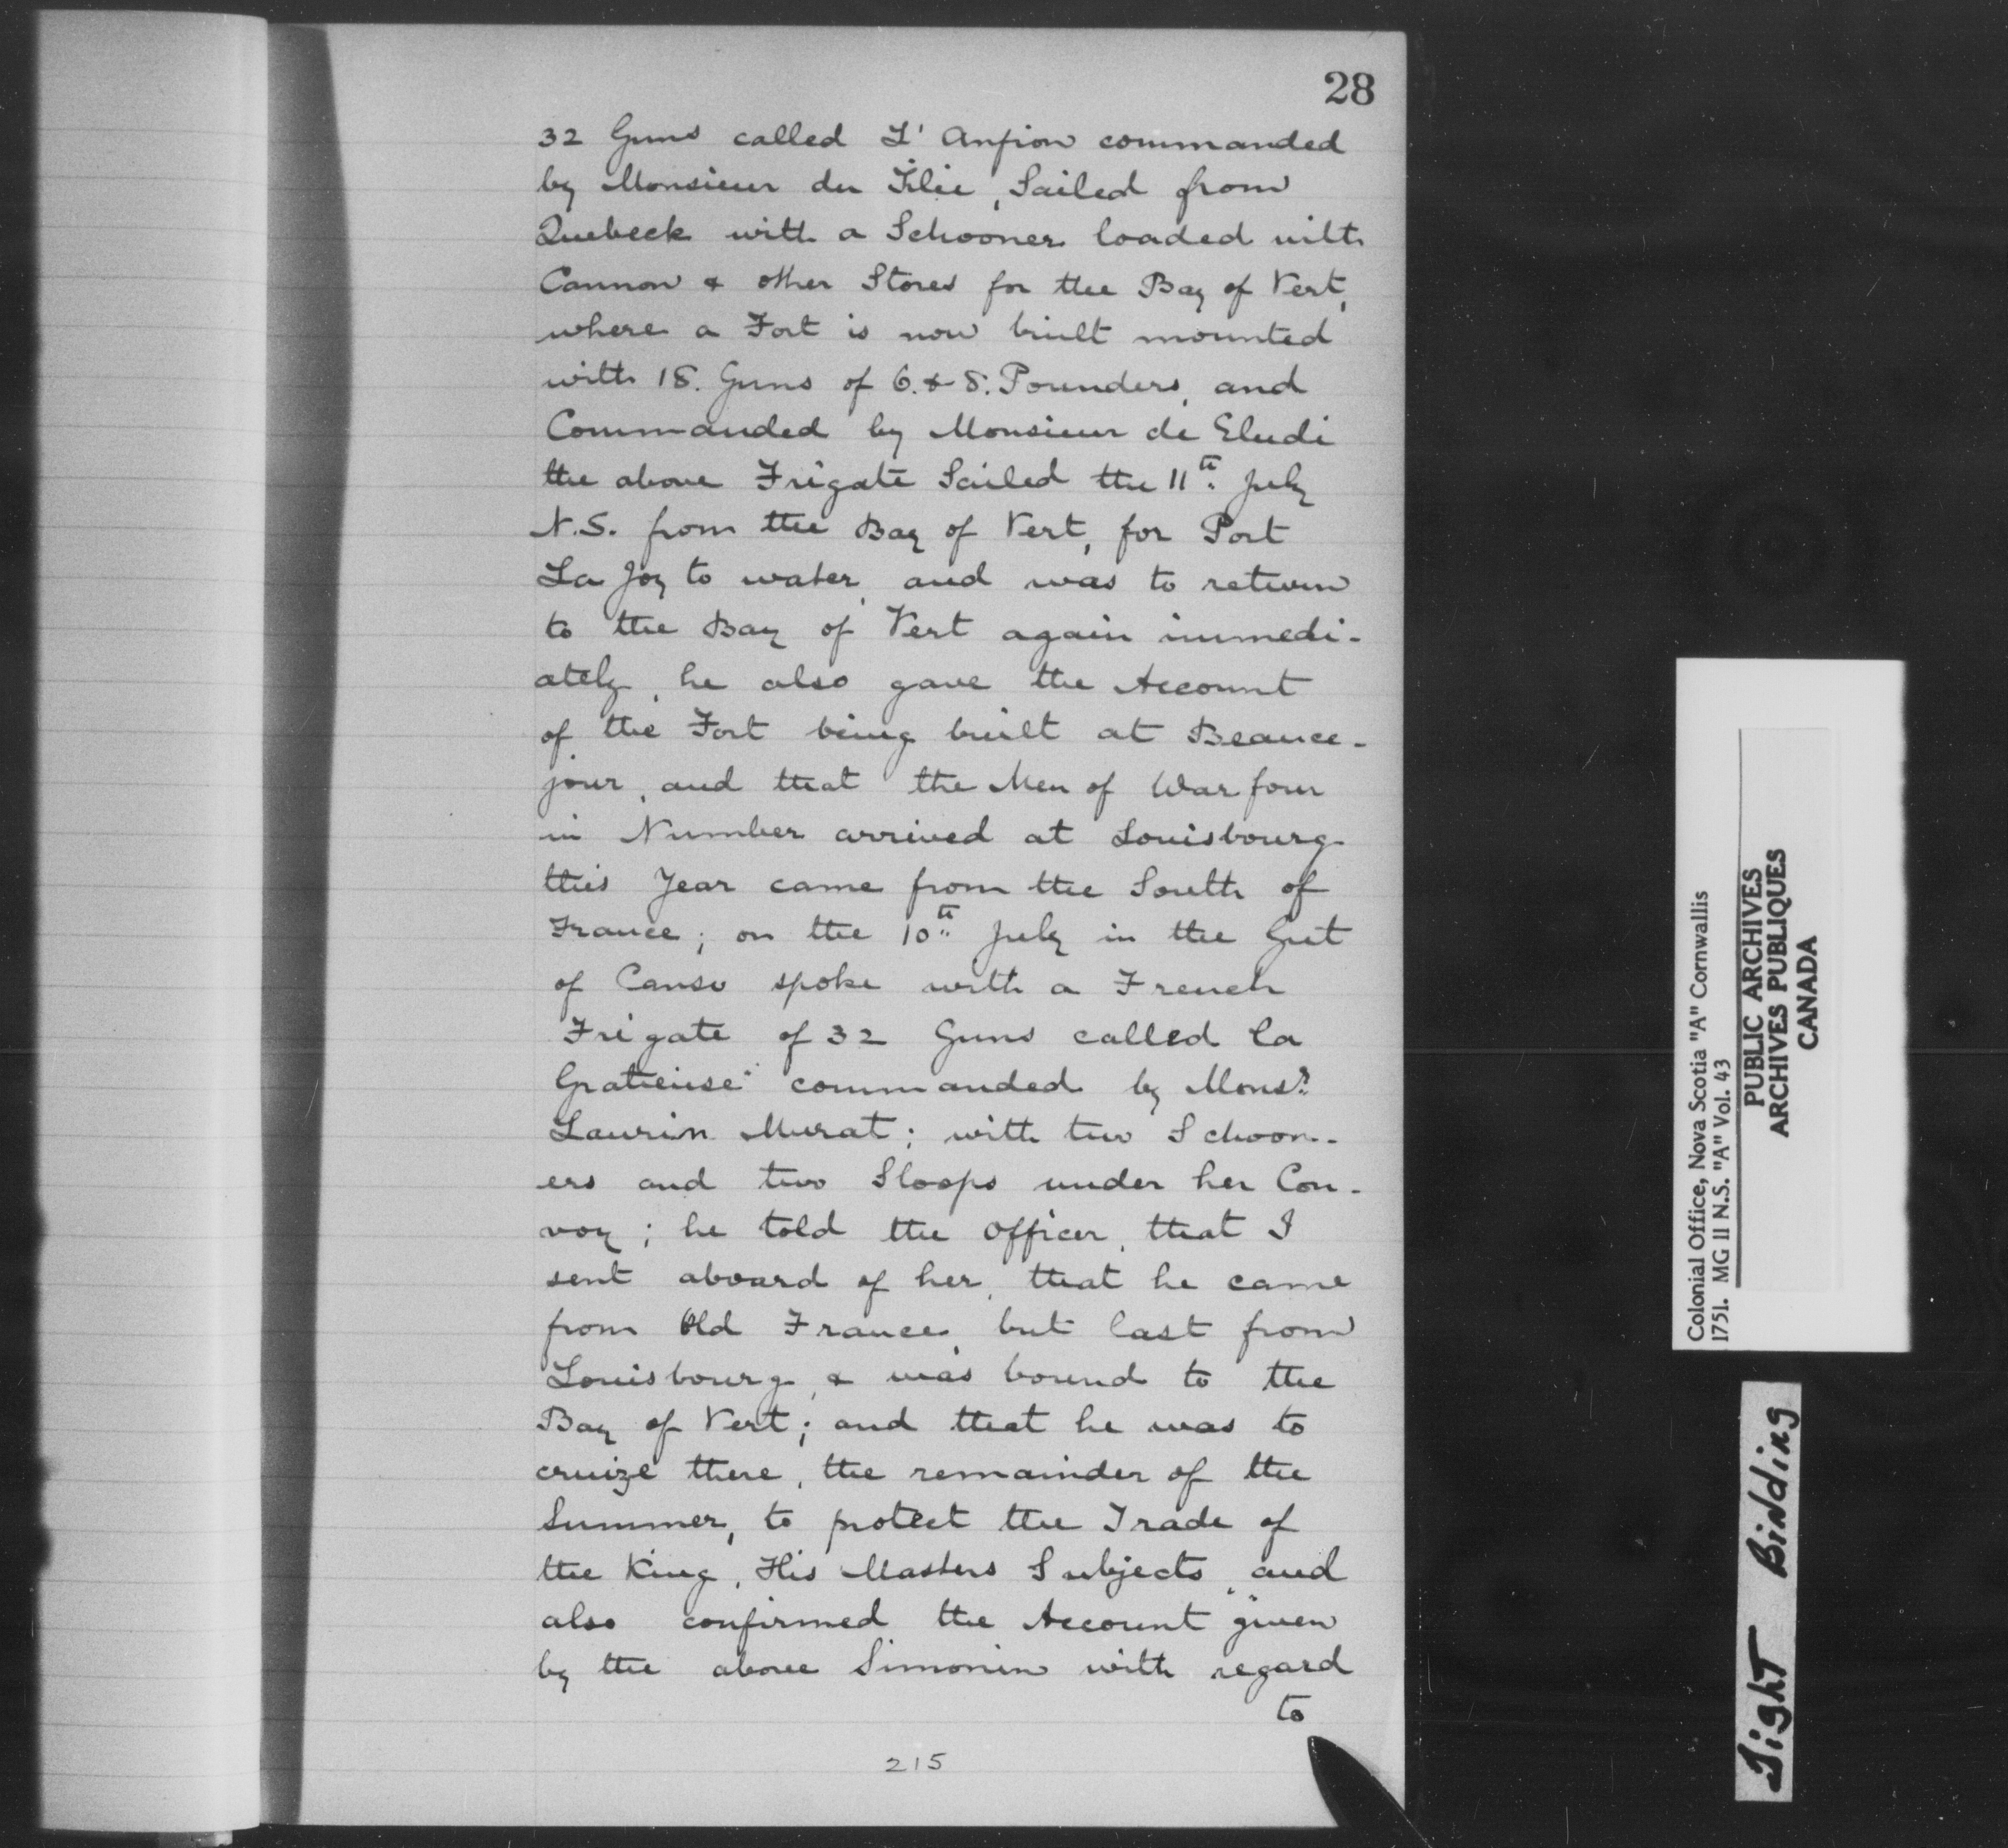 28
32 Guns called L' Anfion commanded
by Monsieur du Filie, Sailed from
Quebeck with a Schooner loaded with
Cannon & other Stores for the Bay of Vert,
where a Fort is now built mounted
with 18. Guns of 6. & 8. Pounders, and
Commanded by Monsieur de Eludi
the above Frigate Sailed the 11th. July
N.S. from the Bay of Vert, for Port
La Joy to water, and was to return
to the Bay of Vert again immedi-
ately, he also gave the Account
of the Fort being built at Beauce-
jour, and that the Men of War four
in Number arrived at Louisbourg
this Year came from the South of
France; on the 10th July in the Gut
of Canso spoke with a French
Frigate of 32 Guns called la
Gratieuse commanded by Monsr.
Laurin Murat; with two Schoon-
ers and two Sloops under her Con-
voy; he told the Officer, that I
sent aboard of her, that he came
from Old France, but last from
Louisbourg, & was bound to the
Bay of Vert; and that he was to
cruize there, the remainder of the
Summer, to protect the Trade of
the King, His Masters Subjects, and
also confirmed the Account given
by the above Simonin with regard
to
215
Colonial Office, Nova Scotia "A" Cornwallis
1751. MG II N.S. "A" Vol. 43
PUBLIC ARCHIVES
ARCHIVES PUBLIQUES
CANADA
Tight Binding